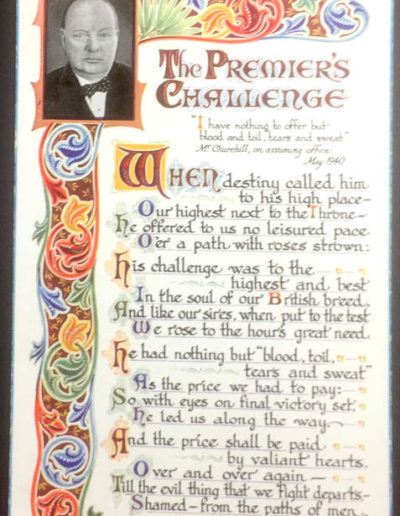 The PREMIER'S
CHALLENGE
"I have nothing to offer but
blood and toil, tears and sweat"
Mr Churchill, on assuming office:
May 1940
WHEN destiny called him
to his high place—
Our highest next to the Throne—
he offered to us no leisured pace
O'er a path with roses strown:
his challenge was to the
highest and best
In the soul of our British breed,
And like our sires, when put to the test
We rose to the hour's great need.
he had nothing but "blood, toil,
tears and sweat"
As the price we had to pay:—
So with eyes on final victory set,
he led us along the way—
And the price shall be paid
by valiant hearts,
Over and over again—
Till the evil thing that we fight departs—
Shamed—from the paths of men.